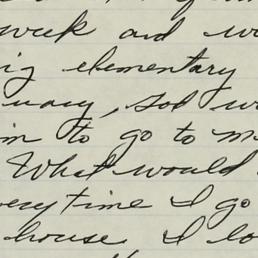 week and w
ig elementary
way, God w
im to go to m
What would
everytime I go
house, I lo